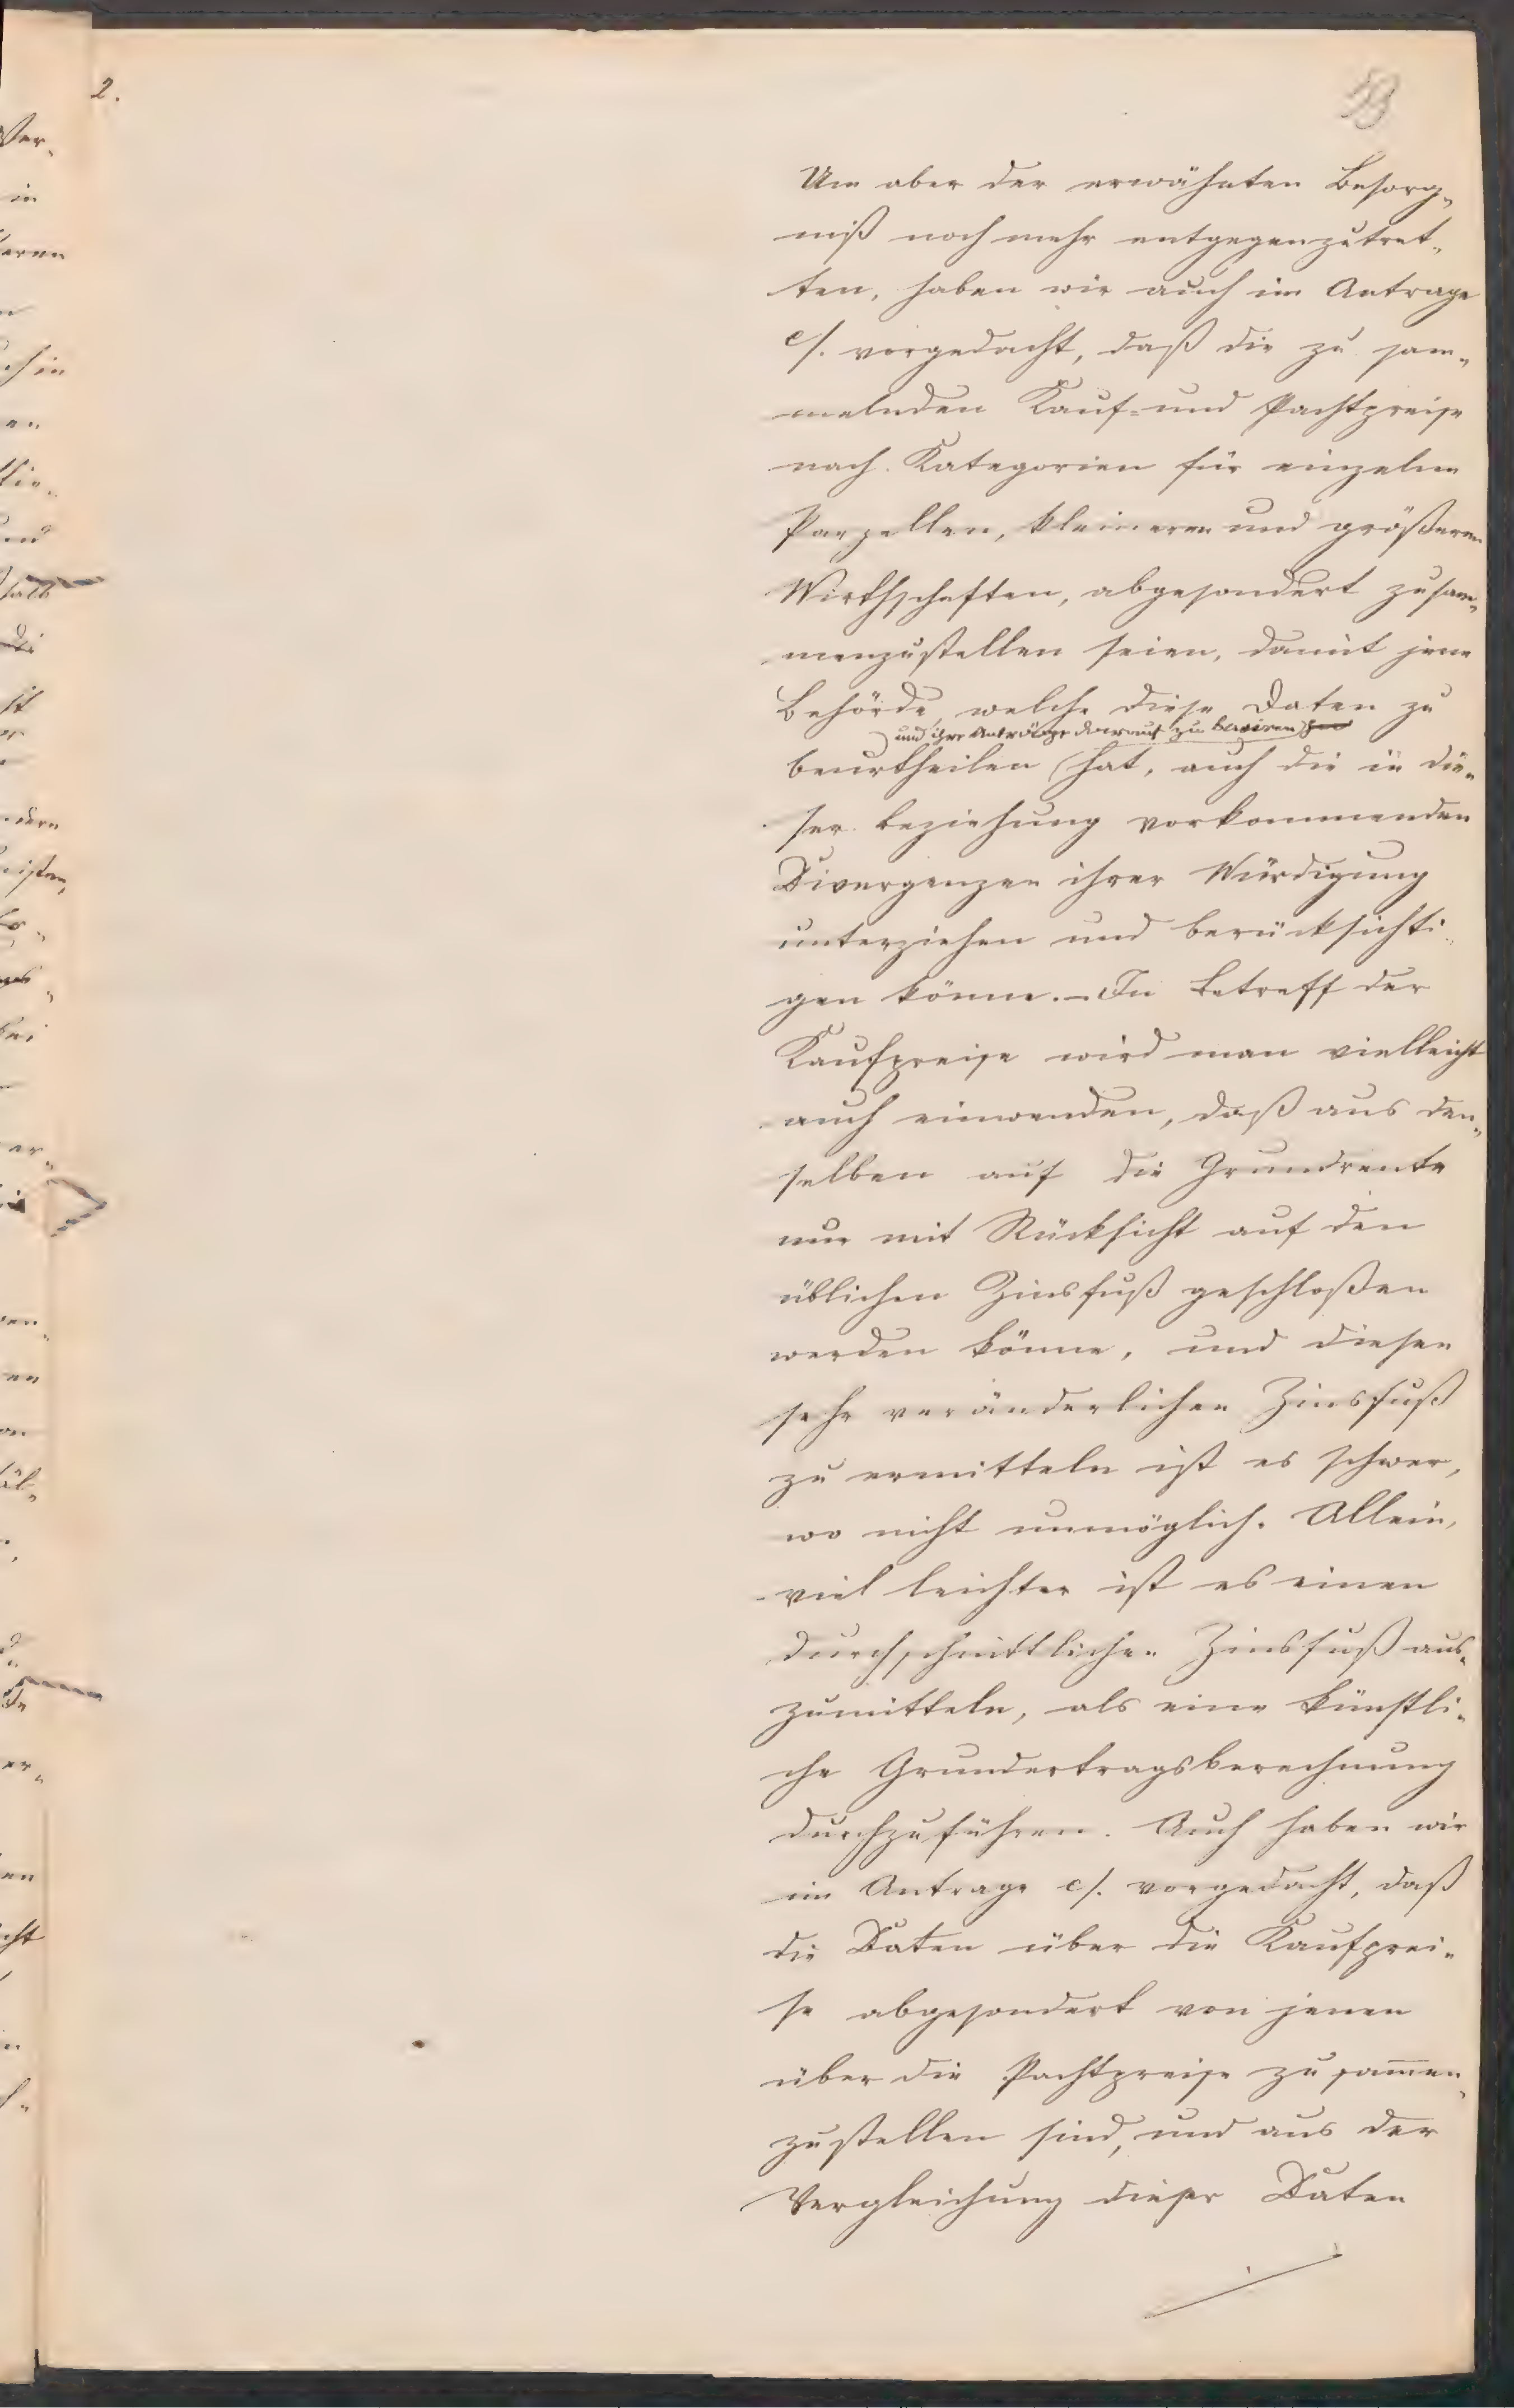 2.
59
Um aber der erwähnten Besorg„
niß noch mehr entgegenzutret„
ten, haben wir auch im Antrage
c/. vorgedacht, daß die zu sam„
melnden Kauf- und Pachtpreise
nach Kategorien für einzelne
Parzellen, kleineren und größeren
Wirthschaften, abgesondert zusam„
menzustellen seien, damit jene
Behörde, welche diese Daten zu
und ihre Anträge darauf zu basiren
beurtheilen hat, auch die in die„
ser Beziehung vorkommenden
Divergenzen ihrer Würdigung
unterziehen und berücksichti„
gen könne. – In Betreff der
Kaufpreise wird man vielleicht
auch einwenden, daß aus den„
selben auf die Grundrente
nur mit Rücksicht auf den
üblichen Zinsfuß geschloßen
werden könne, und diesen
sehr veränderlichen Zinsfuß
zu ermitteln ist es schwer,
wo nicht unmöglich. Allein,
viel leichter ist es einen
durchschnittlichen Zinsfuß aus„
zumitteln, als eine künstli„
che Grundertragsberechnung
durchzuführen. Auch haben wir
im Antrage c/. vorgedacht, daß
die Daten über die Kaufprei„
se abgesondert von jenen
über die Pachtpreise zusam̅en„
zustellen sind, und aus der
Vergleichung dieser Daten